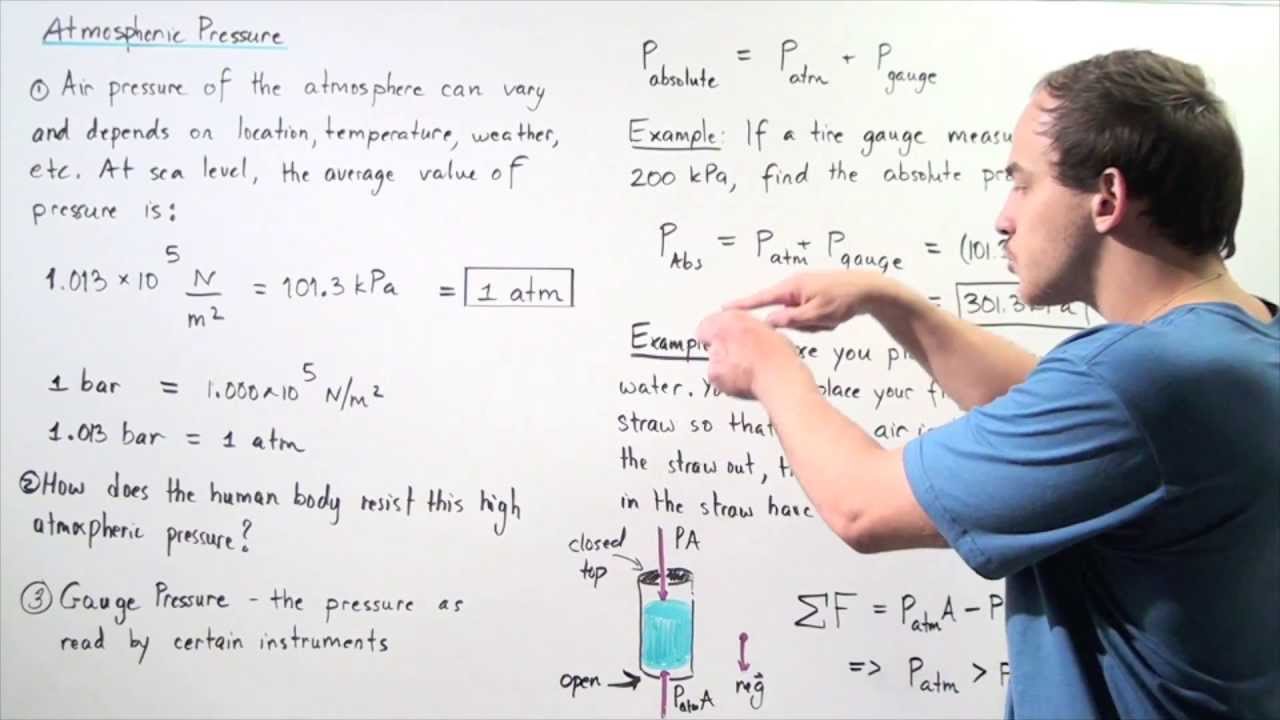 Atmospheric Pressure
① Air pressure of the atmosphere can vary
and depends on location, temperature, weather,
etc. At sea level, the average value of
pressure is:
1.013 × 10⁵ N/m² = 101.3 kPa = 1 atm
1 bar = 1.000×10⁵ N/m²
1.013 bar = 1 atm
② How does the human body resist this high
atmospheric pressure?
③ Gauge Pressure - the pressure as
read by certain instruments
P absolute = P atm + P gauge
Example: If a tire gauge
200 kPa, find the absolute
P Abs = P atm + P gauge = (101.3
= 301.3 kPa
Example
you
water. place your
straw so that air
the straw out,
in the straw have
closed
top
PA
open
P atm A
mg⃗
ΣF = P atm A -
=> P atm >